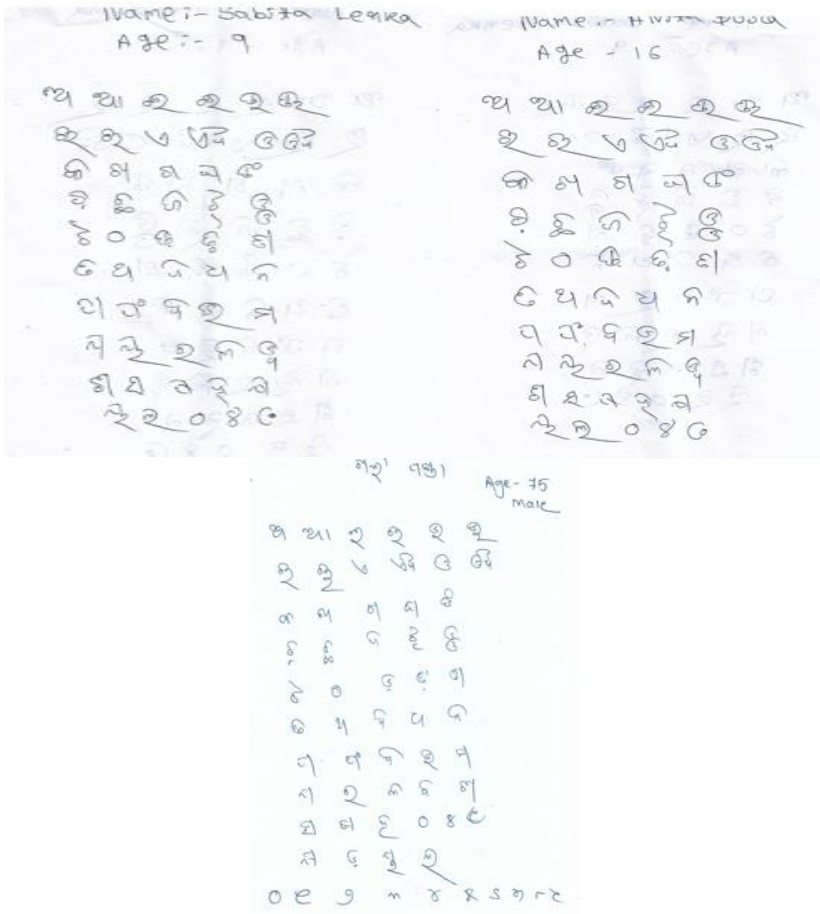 Name :- Sabita Lenka
Age :- 9
ଅ ଆ ଇ ଈ ଉ ଊ
ଋ ୠ ଏ ଐ ଓ ଔ
କ ଖ ଗ ଘ ଙ
ଚ ଛ ଜ ଝ ଞ
ଟ ଠ ଡ ଢ ଣ
ତ ଥ ଦ ଧ ନ
ପ ଫ ବ ଭ ମ
ଯ ୟ ର ଳ ୱ
ଶ ସ ଷ ହ କ୍ଷ
ୟ ଲ ଂ ଃ ଁ
Name :-
Age - 16
ଅ ଆ ଇ ଈ ଉ ଊ
ଋ ୠ ଏ ଐ ଓ ଔ
କ ଖ ଗ ଘ ଙ
ଚ ଛ ଜ ଝ ଞ
ଟ ଠ ଡ ଢ ଣ
ତ ଥ ଦ ଧ ନ
ପ ଫ ବ ଭ ମ
ଯ ୟ ର ଳ ୱ
ଶ ସ ଷ ହ କ୍ଷ
ୟ ଲ ଂ ଃ ଁ
Age - 75
Male
ଅ ଆ ଇ ଈ ଉ ଊ
ଋ ୠ ଏ ଐ ଓ ଔ
କ ଖ ଗ ଘ ଙ
ଚ ଛ ଜ ଝ ଞ
ଟ ଠ ଡ ଢ ଣ
ତ ଥ ଦ ଧ ନ
ପ ଫ ବ ଭ ମ
ଯ ର ଳ ବ ଶ
ସ ଷ ହ ଂ ଃ ଁ
୦ ୧ ୨ ୩ ୪ ୫ ୬ ୭ ୮ ୯